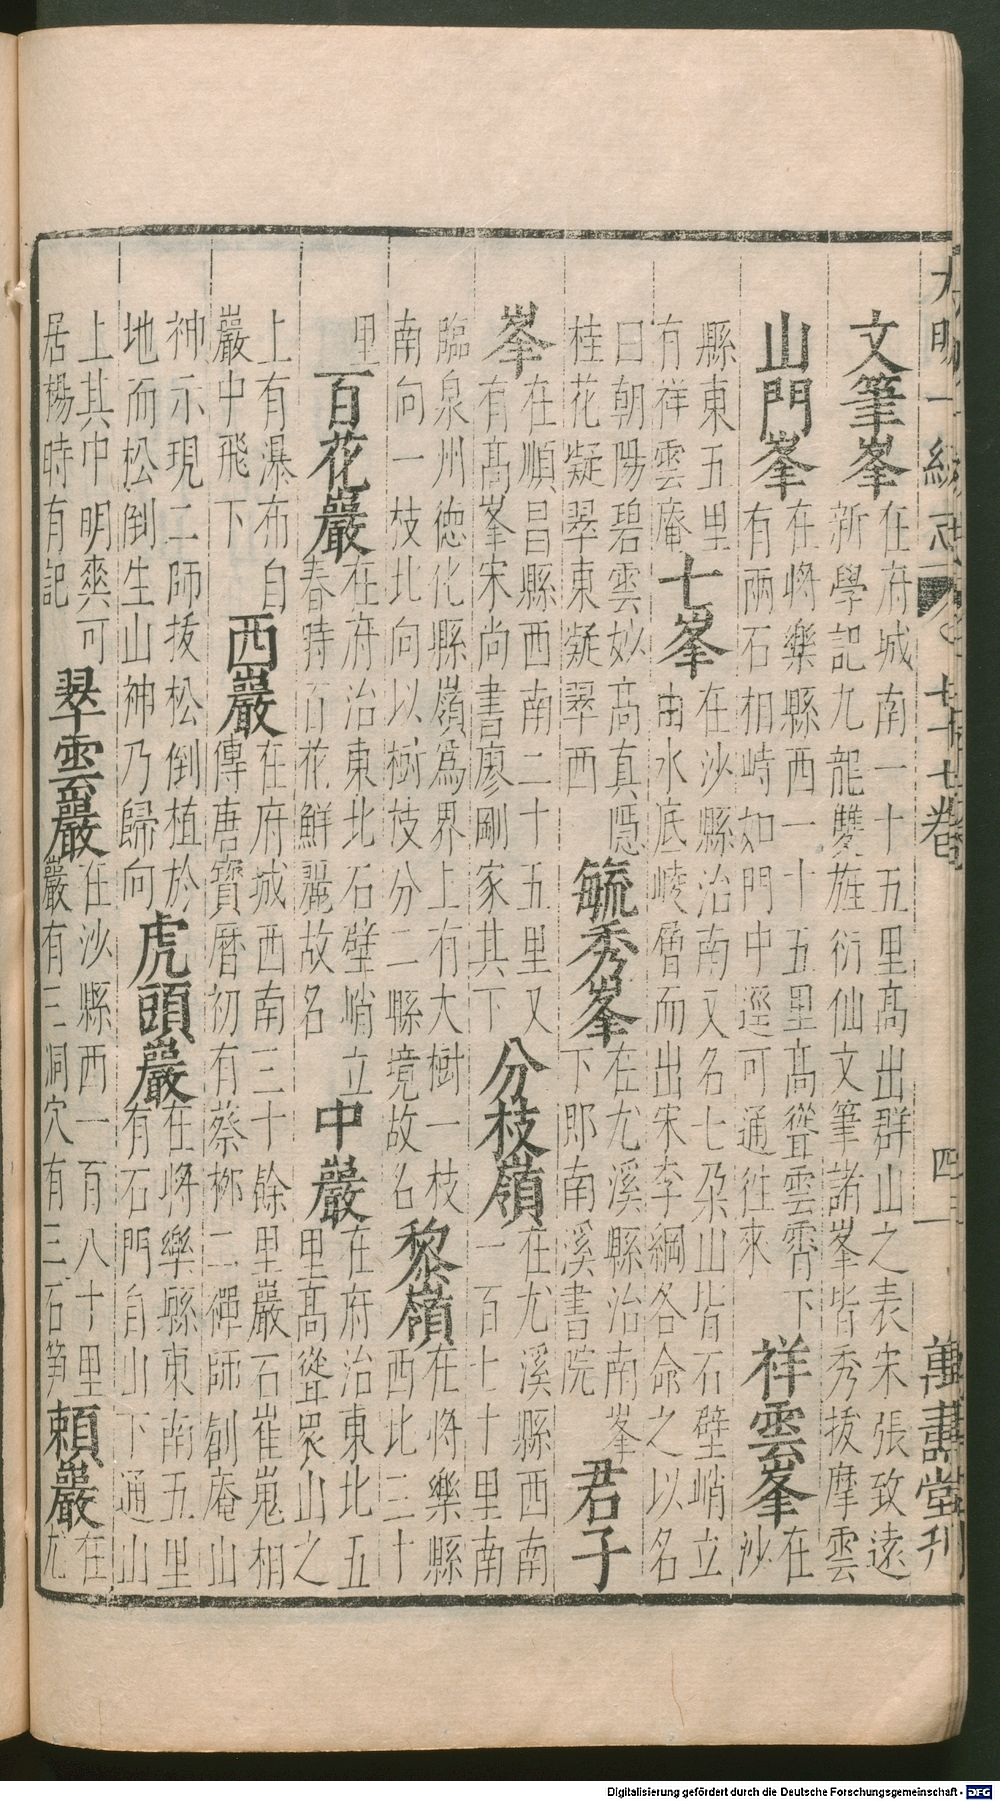 大明一統志 卷之七十七卷 四 萬壽堂刊
文筆峯 在府城南一十五里高出群山之表宋張致遠
新學記九龍雙旌衍仙文筆諸峯皆秀拔摩雲
山門峯 在將樂縣西一十五里高聳雲霄下
有兩石相峙如門中逕可通往來
祥雲峯 在
沙
縣東五里
有祥雲庵
十峯 在沙縣治南又名七朶山皆石壁峭立
由水底崚層而出宋李綱各命之以名
曰朝陽碧雲妙高真隱
桂花凝翠東凝翠西
毓秀峯 在尤溪縣治南峯
下郎南溪書院
君子
峯 在順昌縣西南二十五里又
有高峯宋尚書廖剛家其下
分枝嶺 在尤溪縣西南
一百七十里南
臨泉州德化縣嶺爲界上有大樹一枝
南向一枝北向以樹枝分二縣境故名
黎嶺 在將樂縣
西北三十
里
百花巖 在府治東北石壁峭立
春時百花鮮麗故名
中巖 在府治東北五
里高聳衆山之
上有瀑布自
巖中飛下
西巖 在府城西南三十餘里巖石崔嵬相
傳唐寶曆初有蔡栁二禪師創庵山
神示現二師拔松倒植於
地而松倒生山神乃歸向
虎頭巖 在將樂縣東南五里
有石門自山下通山
上其中明爽可
居楊時有記
翠雲巖 在沙縣西一百八十里
巖有三洞穴有三石笋
頼巖 在
尤
Digitalisierung gefördert durch die Deutsche Forschungsgemeinschaft - DFG